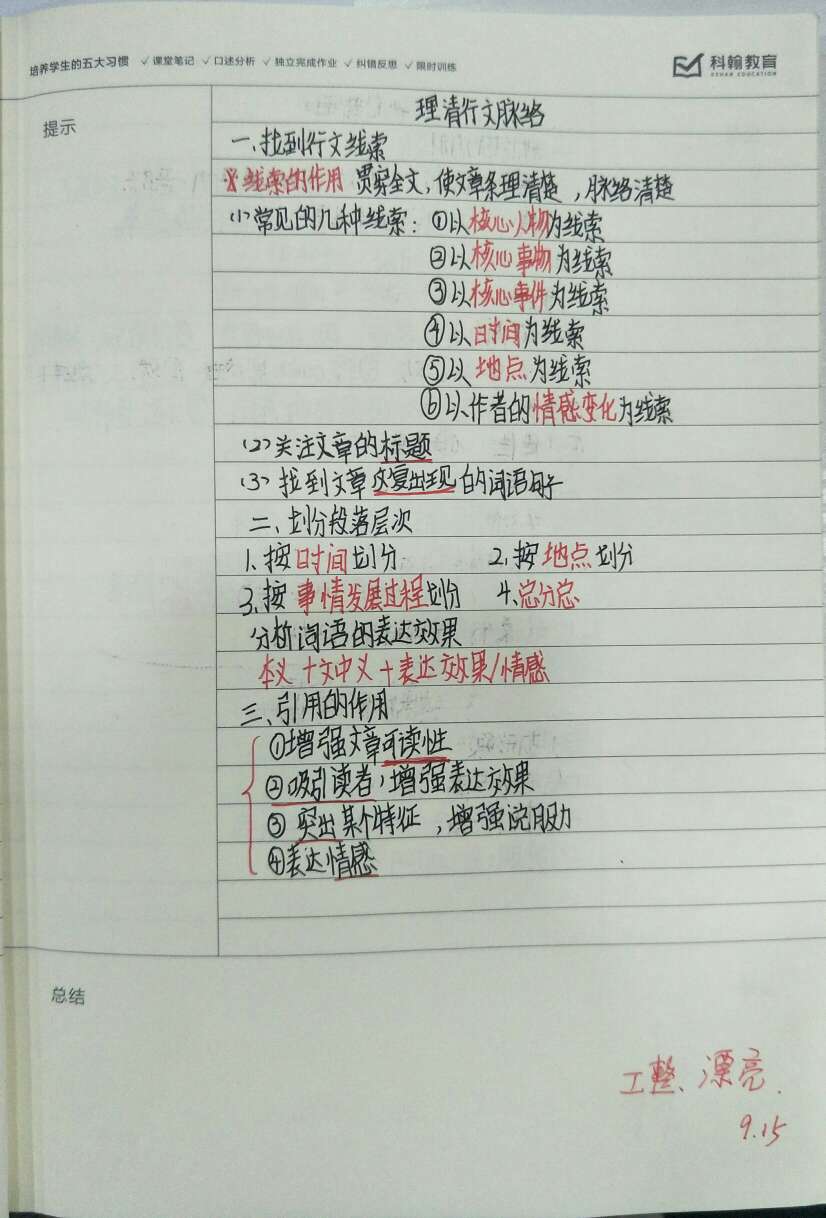 培养学生的五大习惯 ✓课堂笔记 ✓口述分析 ✓独立完成作业 ✓纠错反思 ✓限时训练
科翰教育
KEHAN EDUCATION
提示
理清行文脉络
一、找到行文线索
※线索的作用 贯穿全文,使文章条理清楚,脉络清楚
(1)常见的几种线索:①以核心人物为线索
②以核心事物为线索
③以核心事件为线索
④以时间为线索
⑤以地点为线索
⑥以作者的情感变化为线索
(2)关注文章的标题
(3)找到文章反复出现的词语句子
二、划分段落层次
1、按时间划分 2、按地点划分
3、按事情发展过程划分 4、总分总
分析词语的表达效果
本义+文中义+表达效果/情感
三、引用的作用
①增强文章可读性
②吸引读者,增强表达效果
③突出某个特征,增强说服力
④表达情感
总结
工整、漂亮.
9.15